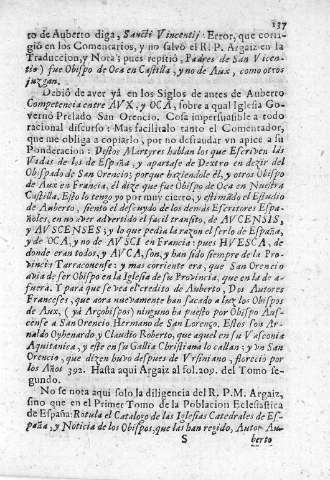 137
to de Auberto diga, Sancti Vincentij: Error, que corri-
gió en los Comentarios, y no salvó el R. P. Argaiz en la
Traduccion, y Nota; pues repitió, Padres de San Vicen-
tio) fue Obispo de Oca en Castilla, y no de Aux, como otros
juzgan.
Debió de aver yá en los Siglos de antes de Auberto
Competencia entre AVX, y OCA, sobre a qual Iglesia Go-
vernó Prelado San Orencio. Cosa impersuasible a todo
racional discurso: Mas facilitalo tanto el Comentador,
que me obliga a copiarlo, por no defraudar vn apice a su
Ponderacion: Destos Martyres hablan los que Escriven las
Vidas de los de España, y apartase de Dextro en dezir del
Obispado de San Orencio; porque haziendole él, y otros Obispo
de Aux en Francia, el dize que fue Obispo de Oca en Nuestra
Castilla. Esto lo tengo yo por muy cierto, y estimado el Estudio
de Auberto, siento el descuydo de los demás Escritores Espa-
ñoles, en no aver advertido el facil transito, de AVCENSIS,
y AVSCENSES; y lo que pedia la razon el serlo de España,
y de OCA, y no de AVSCI en Francia: pues HVESCA, de
donde eran todos, y AVCA, son, y han sido siempre de la Pro-
vincia Tarraconense: y mas corriente era, que San Orencio
avia de ser Obispo en la Iglesia de su Provincia, que en la de a-
fuera. Y para que se vea el credito de Auberto, Dos Autores
Franceses, que aora nuevamente han sacado a luz los Obispos
de Aux, (yá Arçobispos) ninguno ha puesto por Obispo Aus-
cense a San Orencio Hermano de San Lorenço. Estos son Ar-
naldo Oyhenardo y Claudio Roberto, que aquel en su Vasconia
Aquitanica, y este en su Gallia Christiana lo callan; y vn San
Orencio, que dizen huvo despues de Vrsiniano, floreció por
los Años 392. Hasta aqui Argaiz al fol. 209. del Tomo se-
gundo.
No se nota aqui solo la diligencia del R. P. M. Argaiz,
sino que en el Primer Tomo de la Poblacion Eclesiastica
de España: Rotula el Catalogo de las Iglesias Catedrales de Es-
paña, y Noticia de los Obispos, que las han regido, Autor Au-
S berto